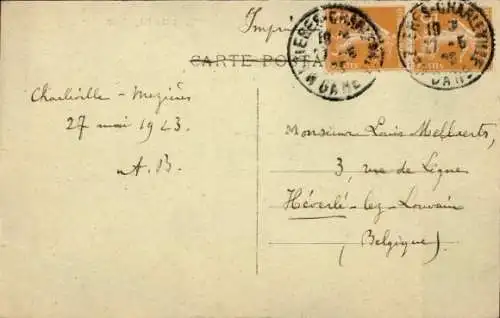 Imprimé
CARTE POSTALE
MEZIERES-CHARLEVILLE
GARE
Charleville - Mezières
27 mai 1923
A. B.
Monsieur Louis Mellaerts,
3, rue de Ligne
Héverlé - lez - Louvain
(Belgique)